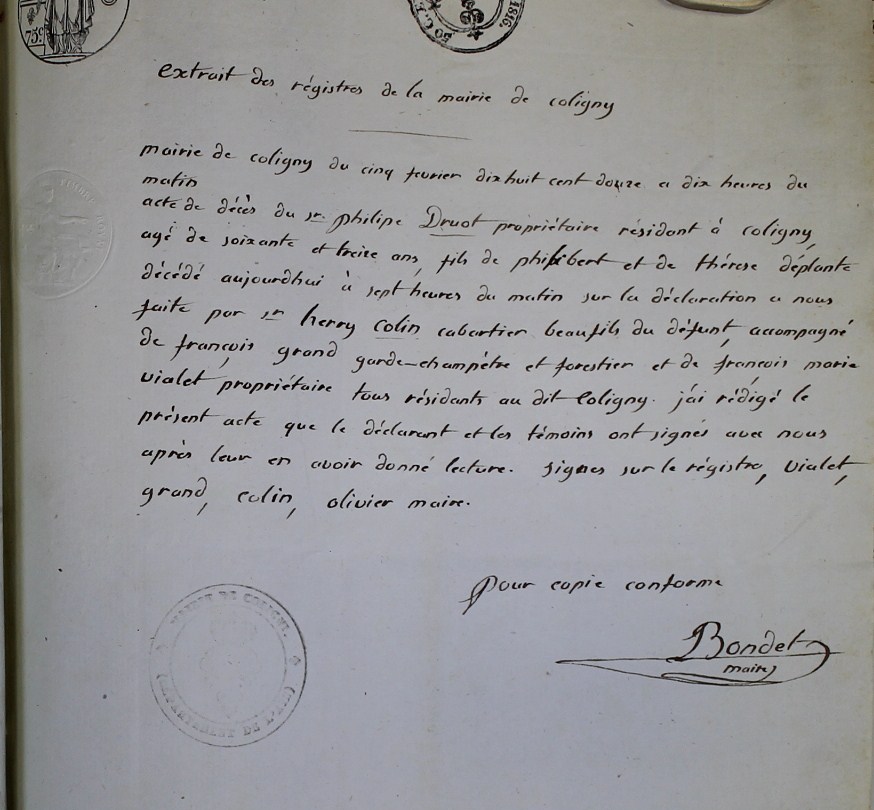 75c
50 C.
1816.
extrait des régistres de la mairie de coligny
mairie de coligny du cinq fevrier dix huit cent douze a dix heures du
matin
acte de décès du sr. philipe Druot propriétaire résidant à coligny,
agé de soixante et treize ans, fils de philibert et de thérese déplante
décédé aujourdhui à sept heures du matin sur la déclaration a nous
faite par sr herry colin cabartier beaufils du défunt, accompagné
de françois grand garde-champétre et forestier et de françois marie
vialet propriétaire tous résidants au dit Coligny. j'ai rédigé le
présent acte que le déclarant et les témoins ont signés avec nous
après leur en avoir donné lecture. signes sur le régistre, vialet,
grand, colin, olivier maire.
pour copie conforme
Bondet
maire
MAIRIE DE COLIGNI.
DÉPARTEMENT DE L'AIN